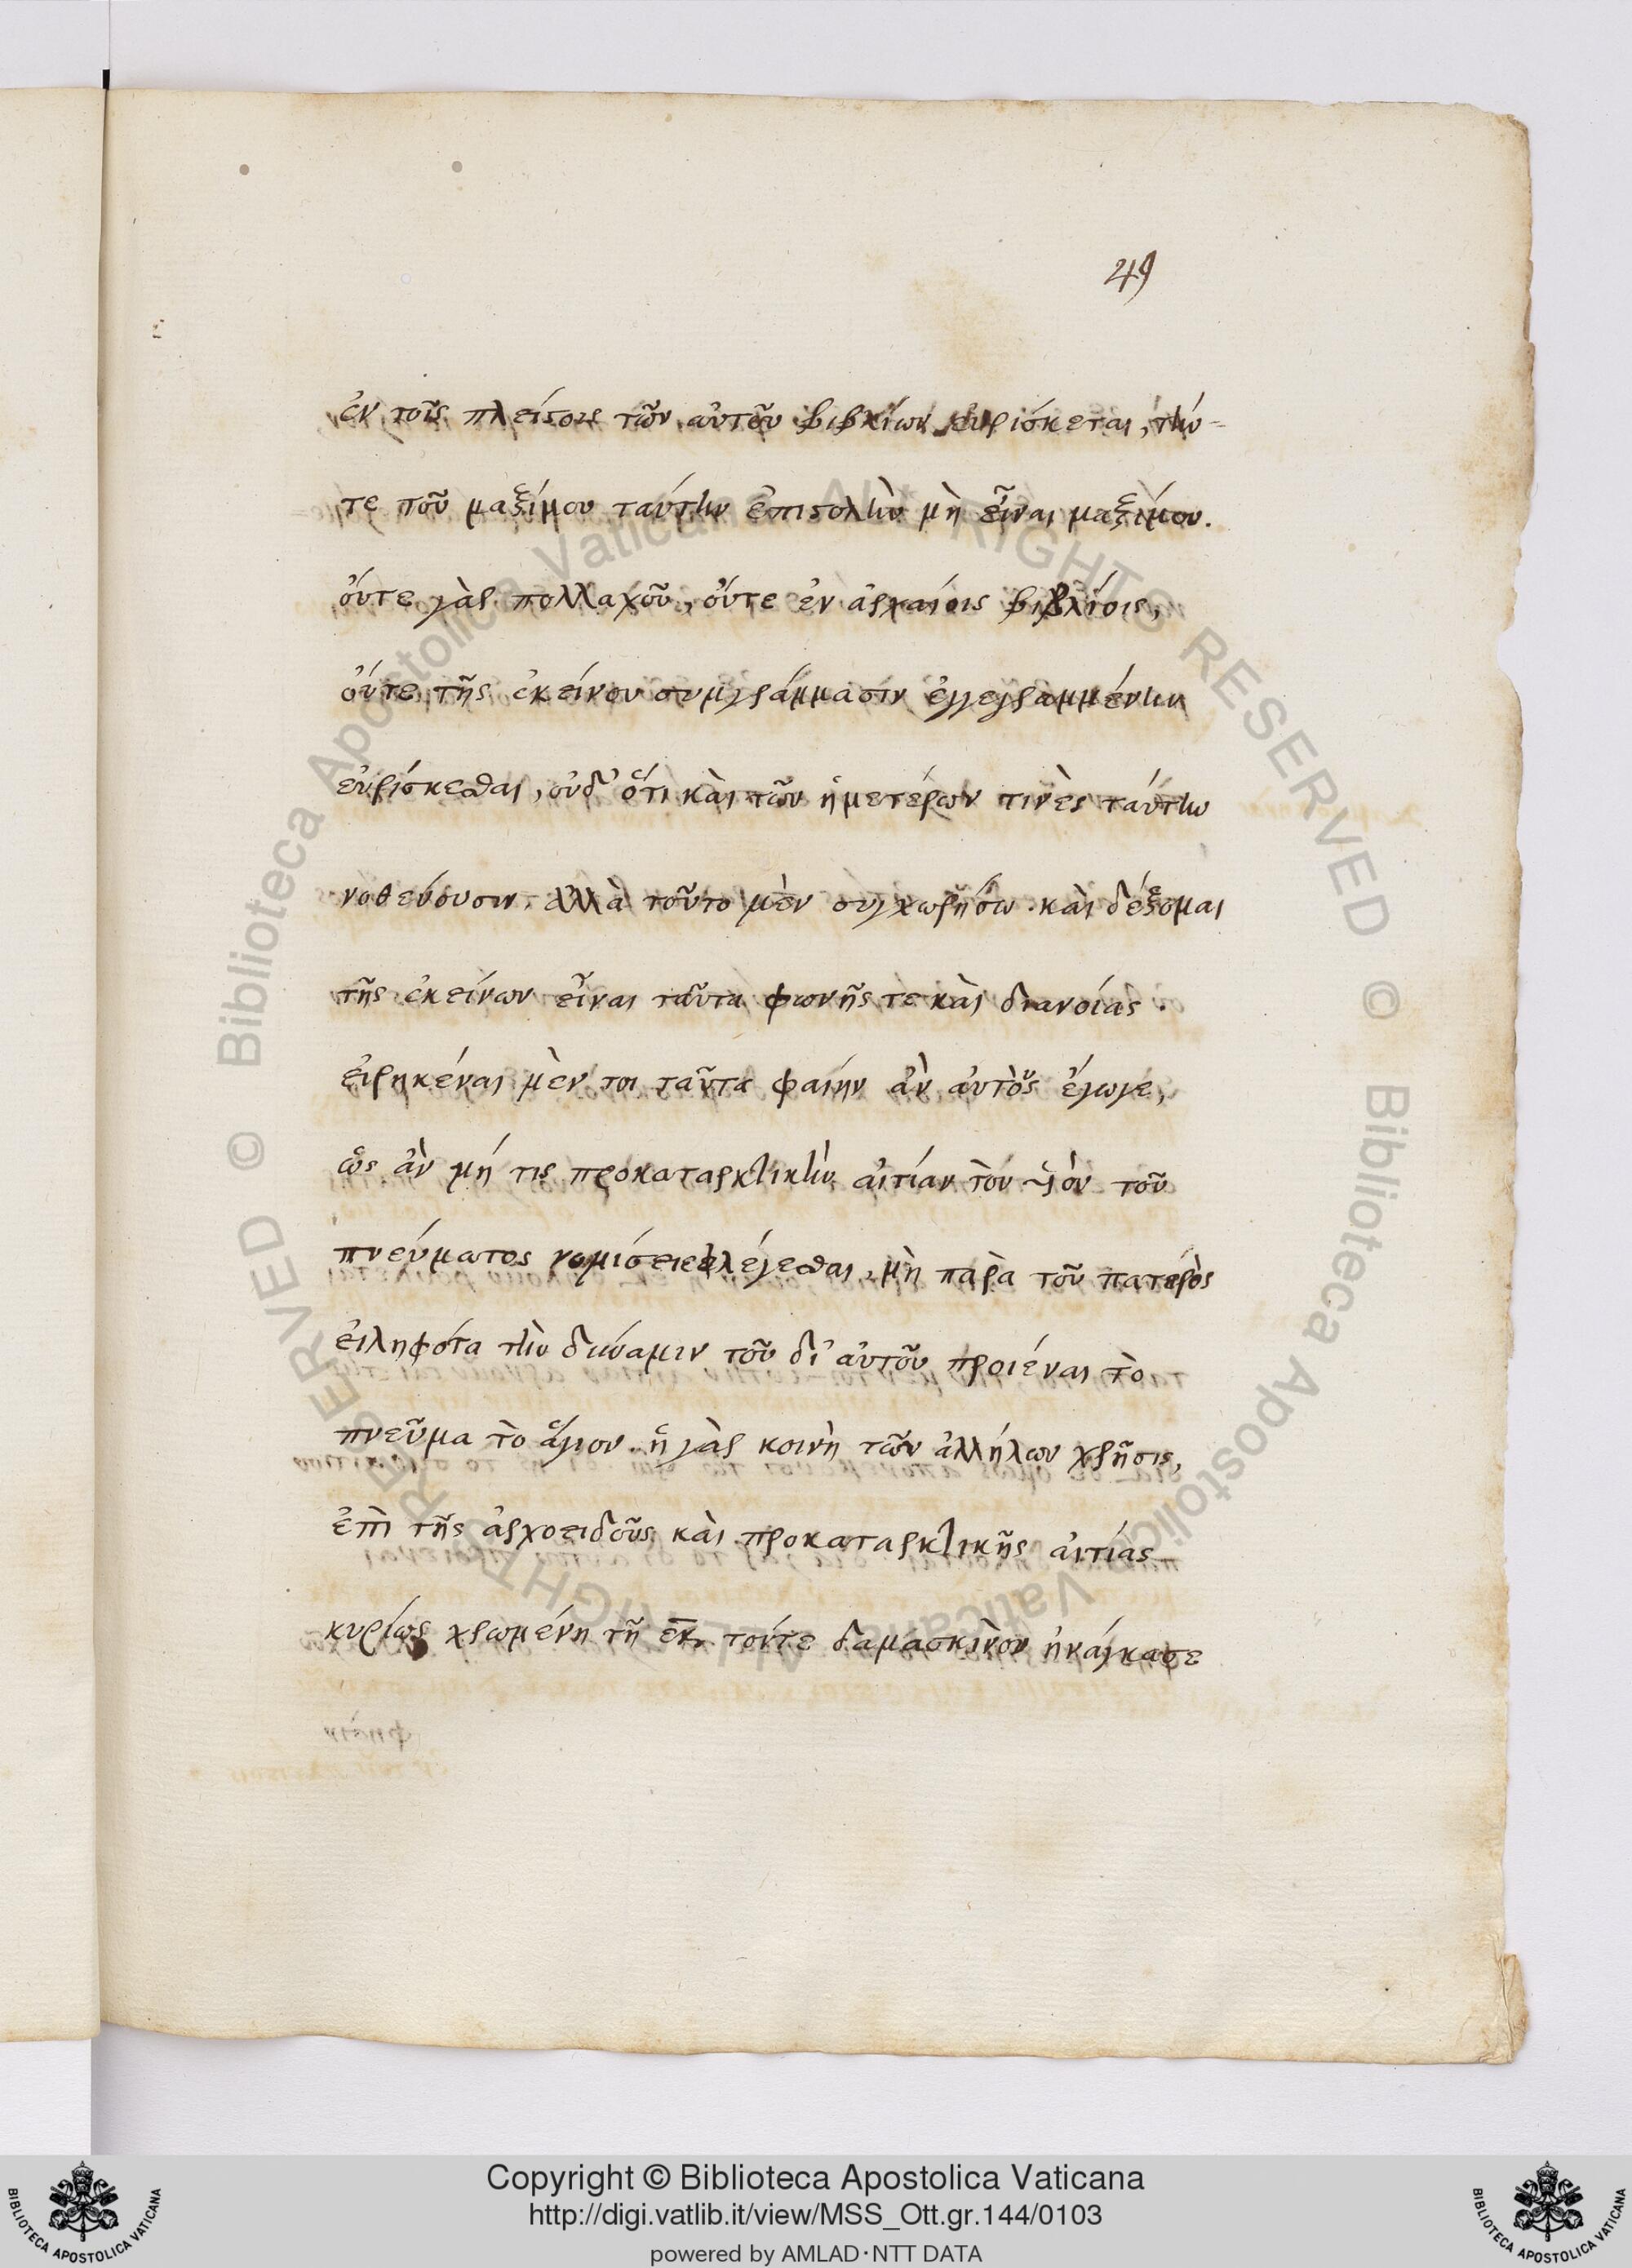 49
ἐν τοῖς πλείστοις τῶν αὐτοῦ βιβλίων εὑρίσκεται, τήν-
τε τοῦ μαξίμου ταύτην ἐπιστολὴν μὴ εἶναι μαξίμου.
οὔτε γὰρ πολλαχοῦ, οὔτε ἐν ἀρχαίοις βιβλίοις,
οὔτε τῆς ἐκείνου συμγράμμασιν ἐγγεγραμμένην
εὑρίσκεσθαι, οὐδ' ὅτι καὶ τῶν ἡμετέρων τινὲς ταύτην
νοθεύουσιν. ἀλλὰ τοῦτο μὲν συγχωρήσω. καὶ δέξομαι
τῆς ἐκείνων εἶναι ταῦτα φωνῆς τε καὶ διανοίας.
εἰρηκέναι μὲν τοι ταῦτα φαίην ἂν αὐτοὺς ἔγωγε,
ὡς ἂν μή τις προκαταρκτικὴν αἰτίαν τὸν υἱὸν τοῦ
πνεύματος νομίσειε λέγεσθαι, μὴ παρὰ τοῦ πατρὸς
εἰληφότα τὴν δύναμιν τοῦ δι' αὐτοῦ προιέναι τὸ
πνεῦμα τὸ ἅγιον. ἡ γὰρ κοινὴ τῶν ἀλλήλων χρῆσις,
ἐπὶ τῆς ἀρχοειδοῦς καὶ προκαταρκτικῆς αἰτίας
κυρίως χρωμένη τῆ ἐκ, τόντε δαμασκινὸν ἠνάγκασε
Copyright © Biblioteca Apostolica Vaticana
http://digi.vatlib.it/view/MSS_Ott.gr.144/0103
powered by AMLAD·NTT DATA